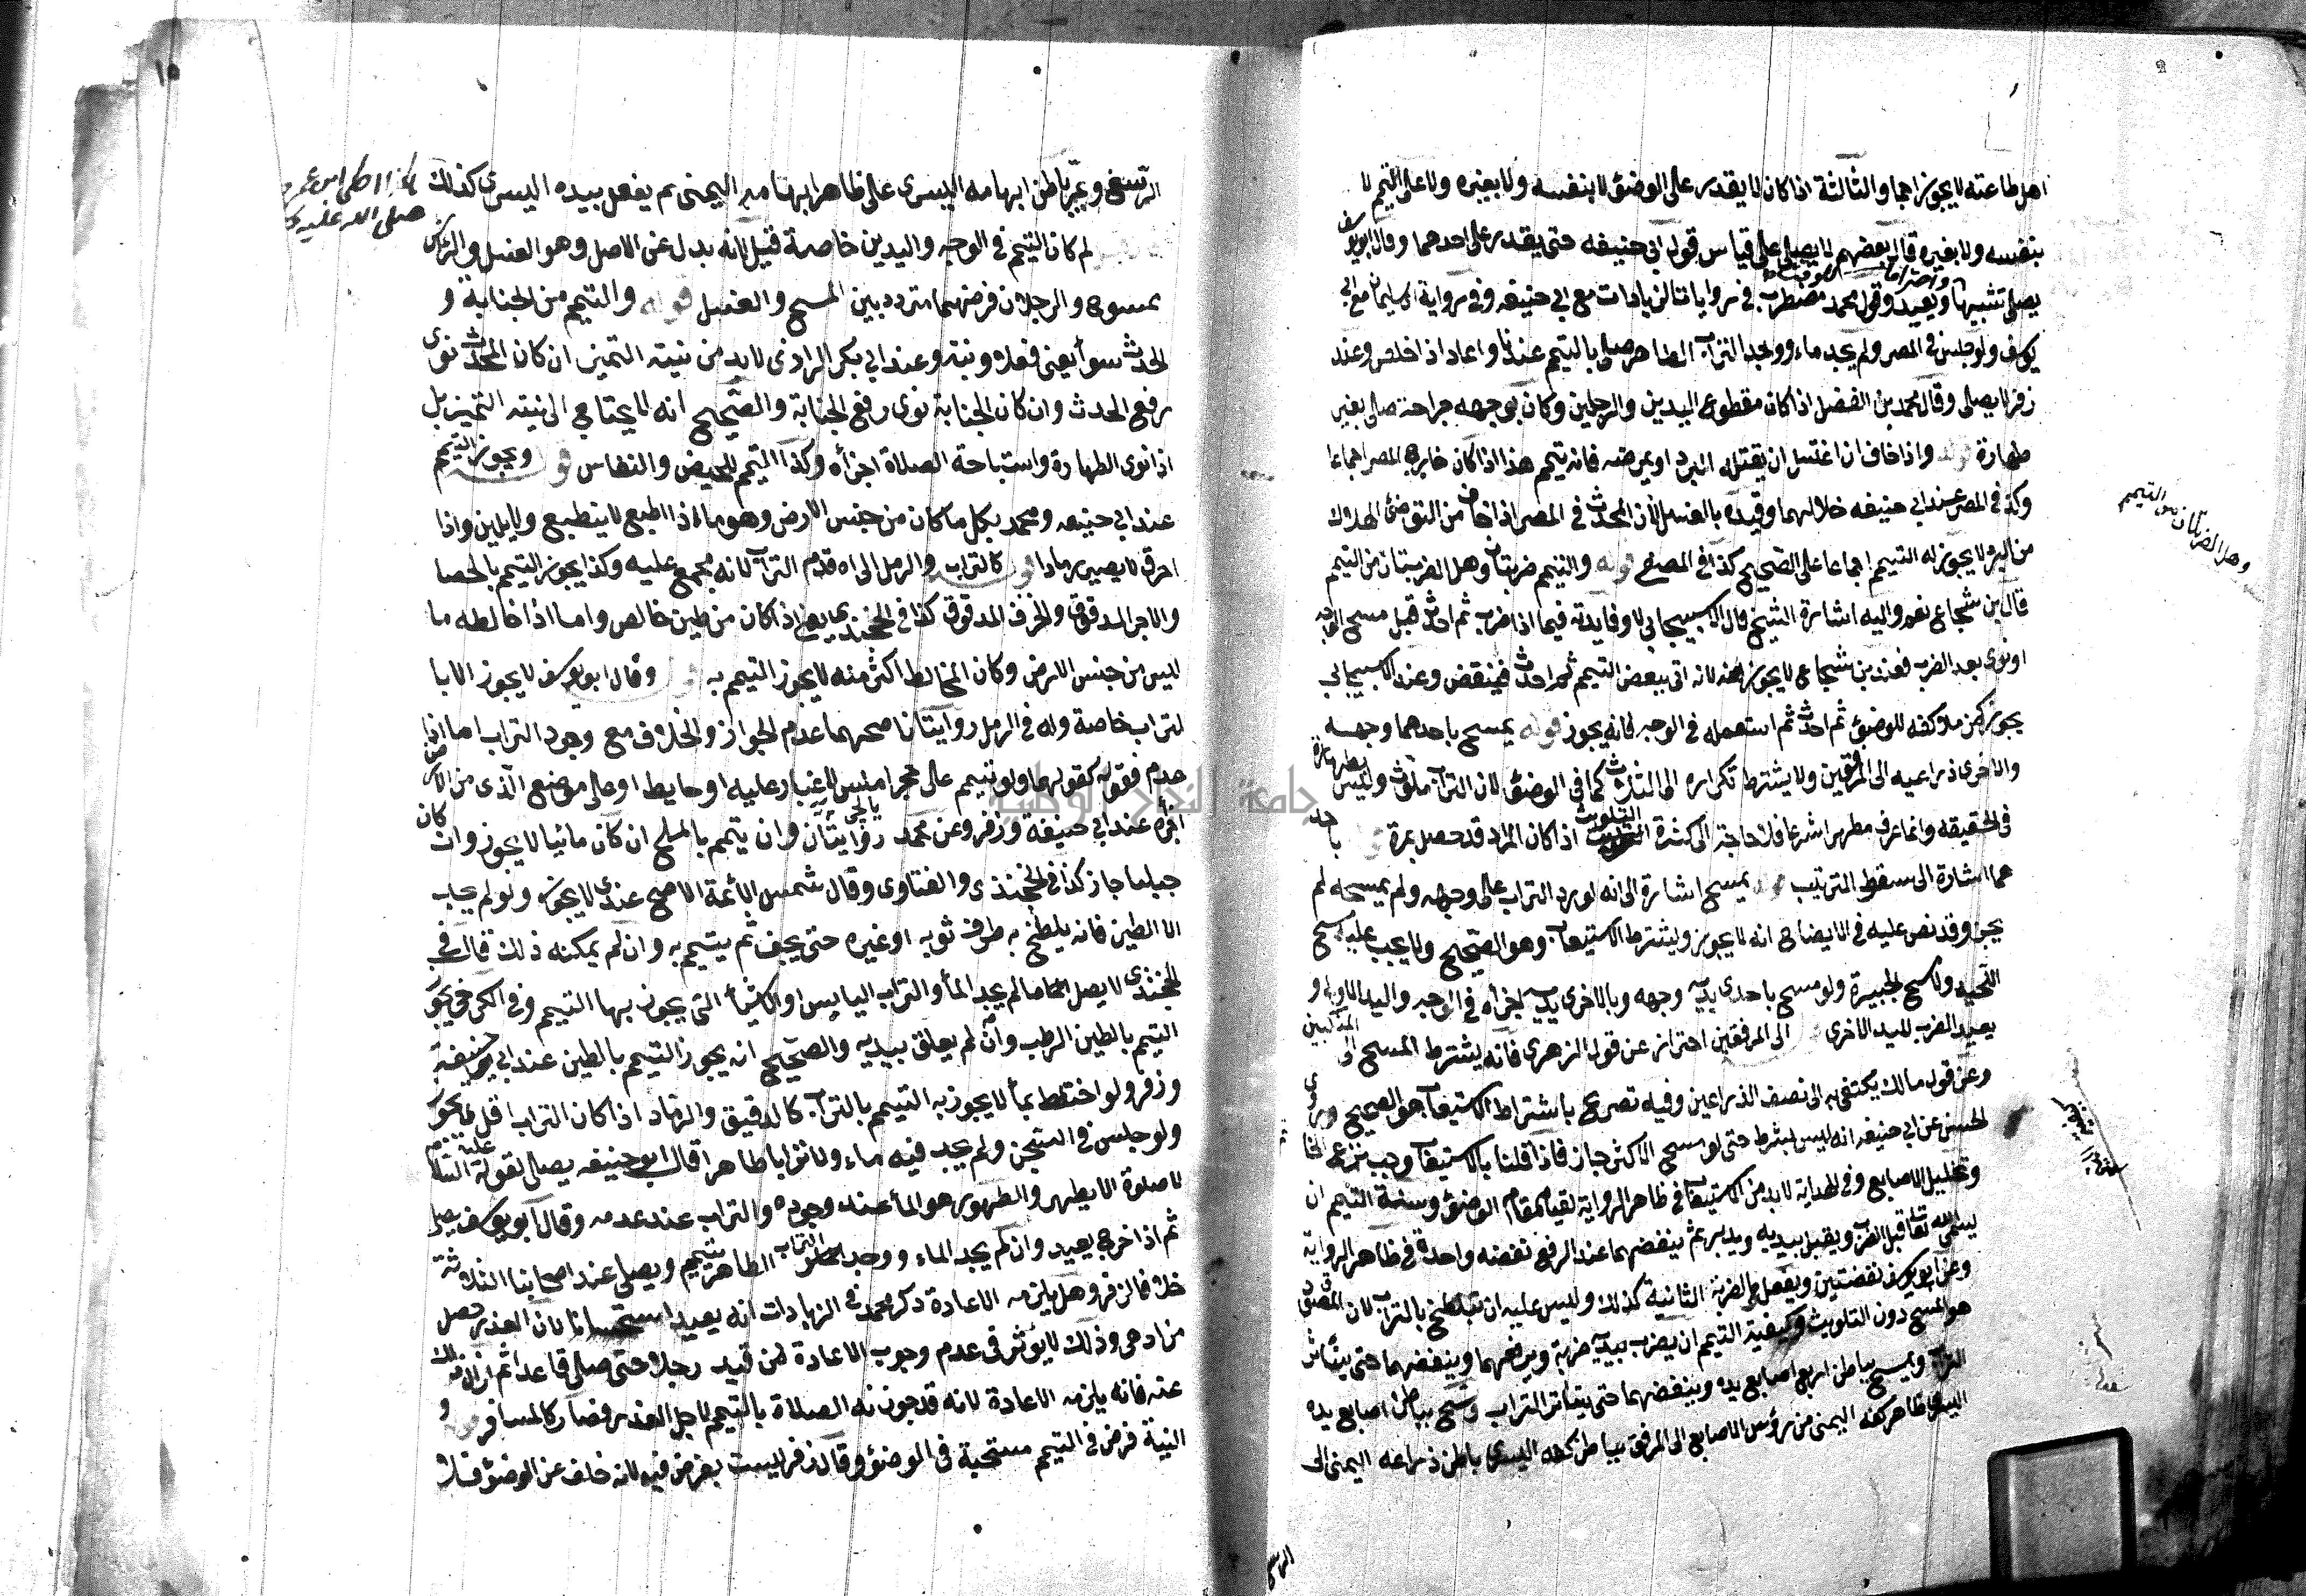 اهل طاعته لا يجوز اجما والثالثة اذا كان لا يقدر على الوضؤ لا بنفسه ولا بغيره ولا على التيم لا
بنفسه ولا بغيره قال بعضهم لا يصلى على قياس قول ابى حنيفه حتى يقدر على احدهما وقال ابو يوسف
يصلى تشبيها ويعيد وقول محمد مضطرب فى روايات الزيادات مع ابى حنيفه وفى رواية ابى سليمان مع ابى
يوسف ولو حبس فى المصر ولم يجد ماء ووجد التراب الطاهر صلى بالتيمم عندنا واعاد اذا خلص وعند
زفر لا يصلى وقال محمد بن الفضل اذا كان مقطوع اليدين والرجلين وكان بوجهه جراحة صلى بغير
طهارة قوله واذا خاف ان اغتسل ان يقتله البرد او يمرضه فانه يتيمم هذا اذا كان خارج المصر اجماعا
وكذا فى المصر عند ابى حنيفه خلافا لهما وقيده بالغسل لأن المحدث فى المصر اذا خاف من التوضئ الهلاك
من البرد لا يجوز له التيمم اجماعا على الصحيح كذا فى المصفى قوله والتيمم ضربتان وهل الضربتان من التيمم
قال ابن شجاع نعم واليه اشارة الشيخ قال الاسبيجابى لا وفايدته فيما اذا ضرب ثم احدث قبل مسح الوجه
او نوى بعد الضرب فعند بن شجاع لا يجوز لانه اتى ببعض التيمم ثم احدث فينتقض وعند الاسبيجابى
يجوز كمن ملا كفه للوضؤ ثم احدث ثم استعمله فى الوجه فانه يجوز قوله يمسح باحدهما وجهه
والاخرى ذراعيه الى المرفقين ولا يشترط تكراره الى الثلاث كما فى الوضؤ لان التراب ملوث وليس بطهارة
فى الحقيقه وانما عرف مطهرا شرعا فلا حاجة الى كثرة التلويث اذا كان المراد قد حصل بمرة باحد
هما اشارة الى سقوط الترتيب قوله يمسح اشارة الى انه لو رد التراب على وجهه ولم يمسحه لم
يجز وقد نص عليه فى الايضاح انه لا يجوز ويشترط الاستيعاب وهو الصحيح ولا يجب عليه مسح
اللحيه ولا مسح الجبيرة ولو مسح باحدى يديه وجهه وبالاخرى يديه اجزأه فى الوجه واليد الاولى و
يعيد الضرب لليد الاخرى الى المرفقين احتراز عن قول الزهرى فانه يشترط المسح الى المنكبين
وعن قول مالك يكتفى به الى نصف الذراعين وفيه تصريح باشتراط الاستيعاب هو الصحيح وروى
الحسن عن ابى حنيفه انه ليس بشرط حتى لو مسح الاكثر جاز فاذا قلنا بالاستيعاب وجب نزع الخا
وتخليل الاصابع وفى الهداية لابد من الاستيعاب فى ظاهر الرواية لقيامه مقام الوضؤ وسنة التيمم ان
يسمى الله تعا قبل الضرب ويقبل بيديه ويدبر ثم ينفضهما عند الرفع نفضه واحدة فى ظاهر الرواية
وعن ابى يوسف نفضتين ويفعل فى الضربة الثانية كذلك وليس عليه ان يتلطخ بالتراب لان المقصود
هو المسح دون التلويث وكيفية التيمم ان يضرب بيديه ضربة ويرفعهما وينفضهما حتى يتناثر
التراب ويمسح بباطن اربع اصابع يده وينفضهما حتى يتناثر التراب ومسح بباطن اصابع يده
اليسرى ظاهر كفه اليمنى من رؤس الاصابع الى المرفق بباطن كفه اليسرى باطن ذراعه اليمنى الى
وهل الضربتان من التيمم
الرسغ ويمر باطن ابهامه اليسرى على ظاهر ابهامه اليمنى ثم يفعل بيده اليسرى كذلك
لم كان التيمم فى الوجه واليدين خاصة قيل لانه بدل عن الاصل وهو الغسل والرأس
ممسوح والرجلان فرضهما متردد بين المسح والغسل قوله والتيمم من الجنابة و
الحدث سوأ يعنى فعلا ونية وعند ابى بكر الرازى لابد من نيته التميز ان كان المحدث نوى
رفع الحدث وان كان الجنابة نوى رفع الجنابة والصحيح انه لا يحتاج الى نيته التميز بل
اذا نوى الطهارة واستباحة الصلاة اجزأه وكذا التيمم للحيض والنفاس قوله ويجوز التيمم
عند ابى حنيفه ومحمد بكل ما كان من جنس الارض وهو ما اذا طبع لا ينطبع ولا يلين واذا
احرق لا يصير رمادا قوله كالتراب والرمل الى اه قدم التراب لانه مجمع عليه وكذا يجوز التيمم بالحصا
والاجر المدقوق والخزف المدقوق كذا فى الخجندى يعنى اذا كان من طين خالص واما اذا خالطه ما
ليس من جنس الارض وكان المخالط اكثر منه لا يجوز التيمم به قوله وقال ابو يوسف لا يجوز الا با
لتراب خاصة وله فى الرمل روايتان اصحهما عدم الجواز والخلاف مع وجود التراب اما اذا
عدم فقوله كقولهما ولو تيمم على حجر املس لا غبار عليه او حايط او على موضع الذى من الارض
اجزأه عند ابى حنيفة وزفر وعن محمد روايتان وان يتمم بالملح ان كان مائيا لا يجوز وان كان
جبليا جاز كذا فى الخجندى والفتاوى وقال شمس الأئمة الاصح عندى لا يجوز ولو لم يجب
الا الطين فانه يلطخ به طرف ثوبه او غيره حتى يجف ثم يتيمم به وان لم يمكنه ذلك قال فى
الخجندى لا يصل ما لم يجد المأ والتراب اليابس او الاشيأ التى يجوز بها التيمم وفى الكرخى يجوز
التيمم بالطين الرطب وان لم يعلق بيديه والصحيح انه يجوز التيمم بالطين عند ابى حنيفه
وزفر ولو اختلط بما لا يجوز به التيمم بالتراب كالدقيق والرماد اذا كان التراب اقل لا يجوز
ولو حبس فى السجن ولم يجد فيه ماء ولا ترابا طاهرا قال ابو حنيفه يصلى لقوله عليه السلام
لا صلوة الا بطهر والطهور هو المأ عند وجوده والتراب عند عدمه وقال ابو يوسف يصلى
ثم اذا خرج يعيد وان لم يجد الماء ووجد التراب الطاهر يتيمم ويصلى عند اصحابنا الثلاثة
خلافا لزفر وهل يلزمه الاعادة ذكر محمد فى الزيادات انه يعيد استحسانا لان العذر حصل
من ادمى وذلك لا يؤثر فى عدم وجوب الاعادة كمن قيد رجلا حتى صلى قاعدا ثم ازال ذلك
عنه فانه يلزمه الاعادة لانه قد جوز له الصلاة بالتيمم لاجل العذر فصار كالمسافر قوله و
النية فرض فى التيمم مستحبة فى الوضؤ وقال زفر ليست بفرض فيه لانه خلف عن الوضؤ فلا
جامعة النجاح الوطنية